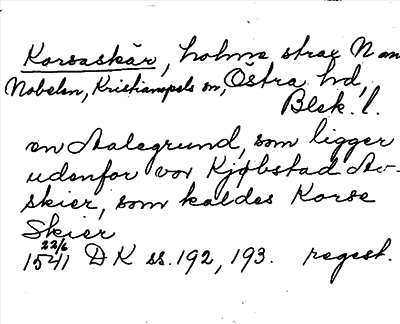 Korsaskär, holme strax N om
Nabben, Kristianopels sn, Östra hd,
Blek. l.
en Aalegrund, som ligger
udenfor vor Kjøbstad Av-
skier, som kaldes Korse
Skier
22/6
1541 DK ss. 192, 193. regest.